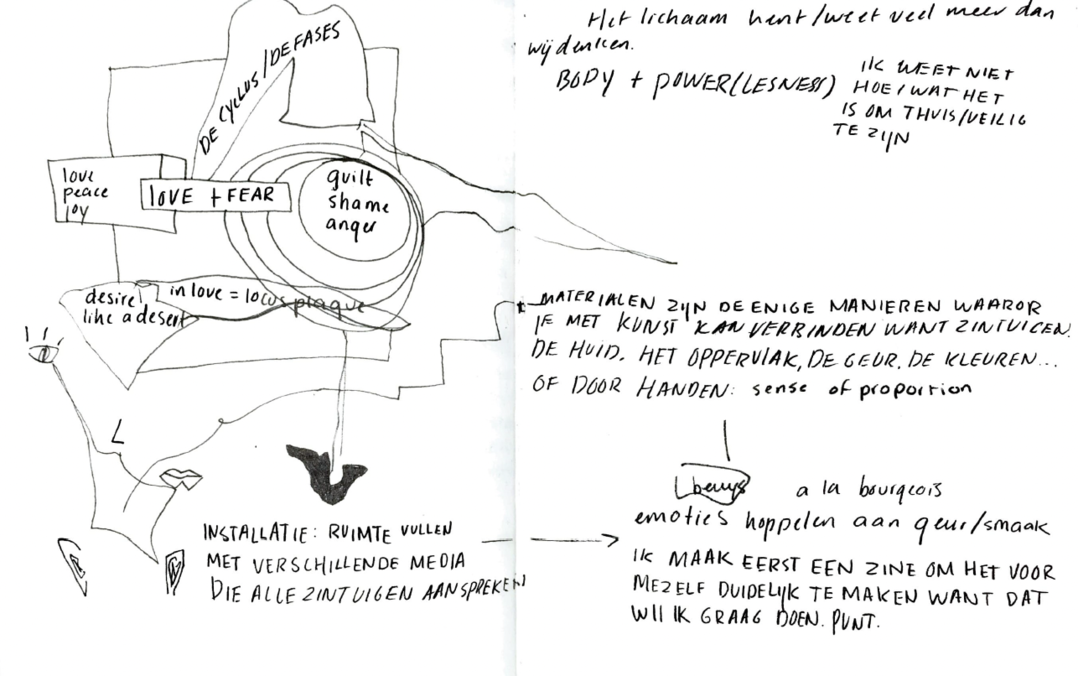 DE CYCLUS/DE FASES
love
peace
joy
LOVE + FEAR
guilt
shame
anger
desire
like a desert
in love = locus plaque
INSTALLATIE: RUIMTE VULLEN
MET VERSCHILLENDE MEDIA
DIE ALLE ZINTUIGEN AANSPREKEN
Het lichaam kent/weet veel meer dan
wij denken.
BODY + POWER(LESNESS)
IK WEET NIET
HOE/WAT HET
IS OM THUIS/VEILIG
TE ZIJN
MATERIALEN ZIJN DE ENIGE MANIEREN WAAROP
JE MET KUNST KAN VERBINDEN WANT ZINTUIGEN.
DE HUID. HET OPPERVLAK, DE GEUR. DE KLEUREN...
OF DOOR HANDEN: sense of proportion
beuys
a la bourgeois
emoties koppelen aan geur/smaak
IK MAAK EERST EEN ZINE OM HET VOOR
MEZELF DUIDELIJK TE MAKEN WANT DAT
WIL IK GRAAG DOEN. PUNT.